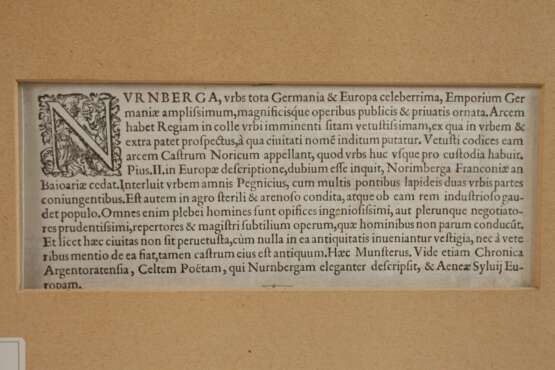 NVRNBERGA, vrbs tota Germania & Europa celeberrima, Emporium Ger
maniæ amplissimum, magnificisq́ue operibus publicis & priuatis ornata. Arcem
habet Regiam in colle vrbi imminenti sitam vetustissimam, ex qua in vrbem &
extra patet prospectus, à qua ciuitati nomẽ inditum putatur. Vetusti codices eam
arcem Castrum Noricum appellant, quod vrbs huc vsque pro custodia habuit.
Pius. II. in Europæ descriptione, dubium esse inquit, Norimberga Franconiæ an
Baioariæ cedat. Interluit vrbem amnis Pegnicius, cum multis pontibus lapideis duas vrbis partes
coniungentibus. Est autem in agro sterili & arenoso condita, atque ob eam rem industrioso gau-
det populo. Omnes enim plebei homines sunt opifices ingeniosissimi, aut plerunque negotiato-
res prudentissimi, repertores & magistri subtilium operum, quæ hominibus non parum conducũt.
Et licet hæc ciuitas non sit peruetusta, cùm nulla in ea antiquitatis inueniantur vestigia, nec à vete
ribus mentio de ea fiat, tamen castrum eius est antiquum. Hæc Munsterus. Vide etiam Chronica
Argentoratensia, Celtem Poëtam, qui Nurnbergam eleganter descripsit, & Aeneæ Syluij Eu-
ropam.